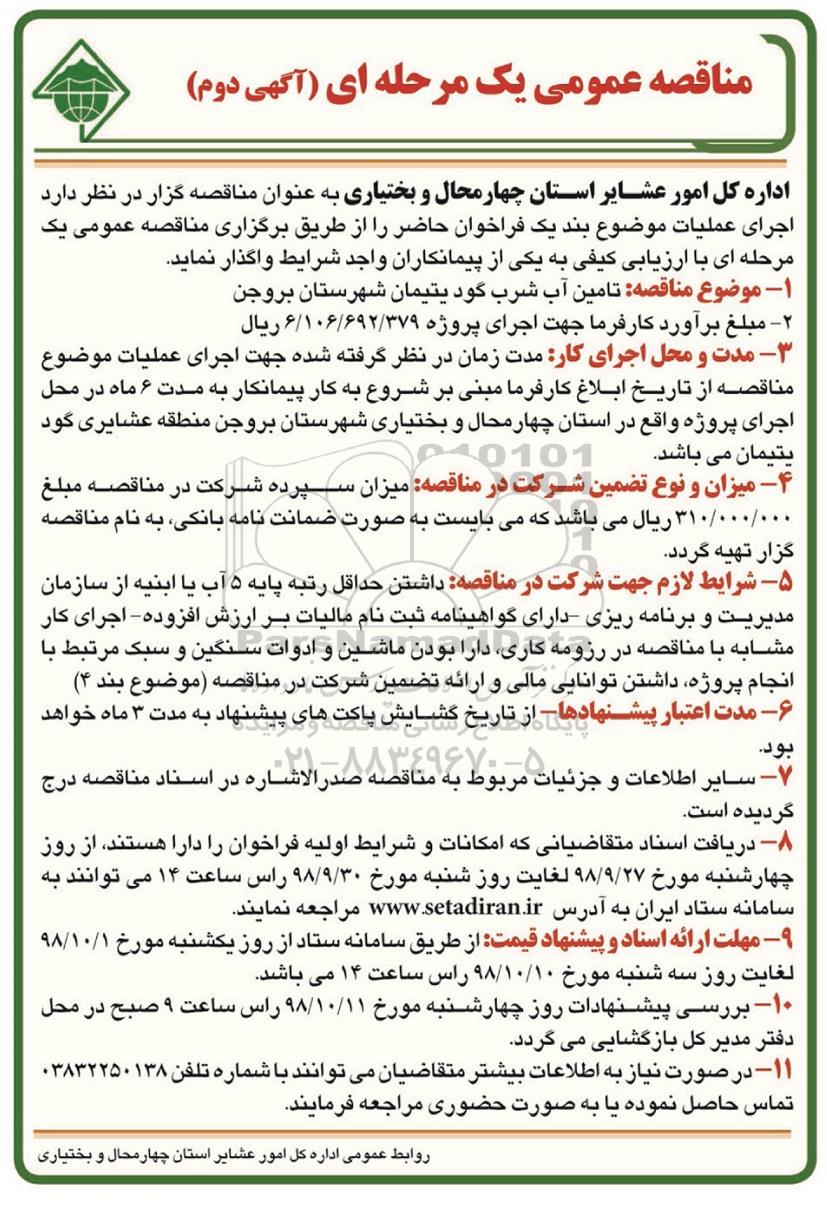 مناقصه عمومی یک مرحله ای (آگهی دوم)
اداره کل امور عشایر استان چهارمحال و بختیاری به عنوان مناقصه گزار در نظر دارد
اجرای عملیات موضوع بند یک فراخوان حاضر را از طریق برگزاری مناقصه عمومی یک
مرحله ای با ارزیابی کیفی به یکی از پیمانکاران واجد شرایط واگذار نماید.
۱- موضوع مناقصه: تامین آب شرب گود یتیمان شهرستان بروجن
۲- مبلغ برآورد کارفرما جهت اجرای پروژه ۶/۱۰۶/۶۹۲/۳۷۹ ریال
۳- مدت و محل اجرای کار: مدت زمان در نظر گرفته شده جهت اجرای عملیات موضوع
مناقصه از تاریخ ابلاغ کارفرما مبنی بر شروع به کار پیمانکار به مدت ۶ ماه در محل
اجرای پروژه واقع در استان چهارمحال و بختیاری شهرستان بروجن منطقه عشایری گود
یتیمان می باشد.
۴- میزان و نوع تضمین شرکت در مناقصه: میزان سپرده شرکت در مناقصه مبلغ
۳۱۰/۰۰۰/۰۰۰ ریال می باشد که می بایست به صورت ضمانت نامه بانکی، به نام مناقصه
گزار تهیه گردد.
۵- شرایط لازم جهت شرکت در مناقصه: داشتن حداقل رتبه پایه ۵ آب یا ابنیه از سازمان
مدیریت و برنامه ریزی -دارای گواهینامه ثبت نام مالیات بر ارزش افزوده- اجرای کار
مشابه با مناقصه در رزومه کاری، دارا بودن ماشین و ادوات سنگین و سبک مرتبط با
انجام پروژه، داشتن توانایی مالی و ارائه تضمین شرکت در مناقصه (موضوع بند ۴)
۶- مدت اعتبار پیشنهادها- از تاریخ گشایش پاکت های پیشنهاد به مدت ۳ ماه خواهد
بود.
۷- سایر اطلاعات و جزئیات مربوط به مناقصه صدرالاشاره در اسناد مناقصه درج
گردیده است.
۸- دریافت اسناد متقاضیانی که امکانات و شرایط اولیه فراخوان را دارا هستند، از روز
چهارشنبه مورخ ۹۸/۹/۲۷ لغایت روز شنبه مورخ ۹۸/۹/۳۰ راس ساعت ۱۴ می توانند به
سامانه ستاد ایران به آدرس www.setadiran.ir مراجعه نمایند.
۹- مهلت ارائه اسناد و پیشنهاد قیمت: از طریق سامانه ستاد از روز یکشنبه مورخ ۹۸/۱۰/۱
لغایت روز سه شنبه مورخ ۹۸/۱۰/۱۰ راس ساعت ۱۴ می باشد.
۱۰- بررسی پیشنهادات روز چهارشنبه مورخ ۹۸/۱۰/۱۱ راس ساعت ۹ صبح در محل
دفتر مدیر کل بازگشایی می گردد.
۱۱- در صورت نیاز به اطلاعات بیشتر متقاضیان می توانند با شماره تلفن ۰۳۸۳۲۲۵۰۱۳۸
تماس حاصل نموده یا به صورت حضوری مراجعه فرمایند.
روابط عمومی اداره کل امور عشایر استان چهارمحال و بختیاری
ParsNamadData
پایگاه اطلاع رسانی مناقصه و مزایده
۰۲۱-۸۸۳۴۹۶۷۰-۵